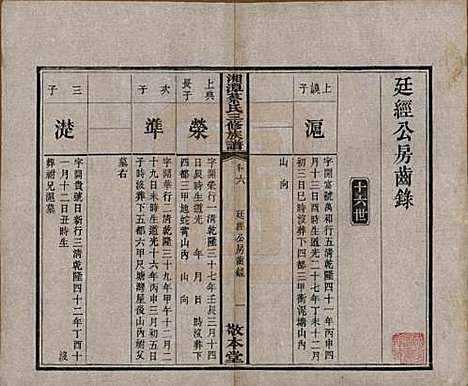 廷經公房齒錄
十六世
上謨子
滬
字開富號萬和行五清乾隆四十一年丙申四
月十三日酉時生道光二十七年丁未十二月
初三日巳時沒葬下五都六甲三甲衝泥塘山內
山 向
湘潭 氏三修族譜
卷十六
廷經公房齒錄
一
敬本堂
上典長子
榮
字開榮行一清乾隆三十七年壬辰三月十四
辰時生道光 年 月 日 時沒葬下
五都三甲地蛇 山內 山 向
次子
準
字開華行二清乾隆三十九年甲午十二月二
十九日未時生道光十六年丙申三月初九日
子時沒葬下五都六甲尺塘灣屋後山內
墓右
三子
濋
字開貴號日新行三清乾隆四十二年丁酉十
一月十二日丑時生 沒
葬祔兄滬墓